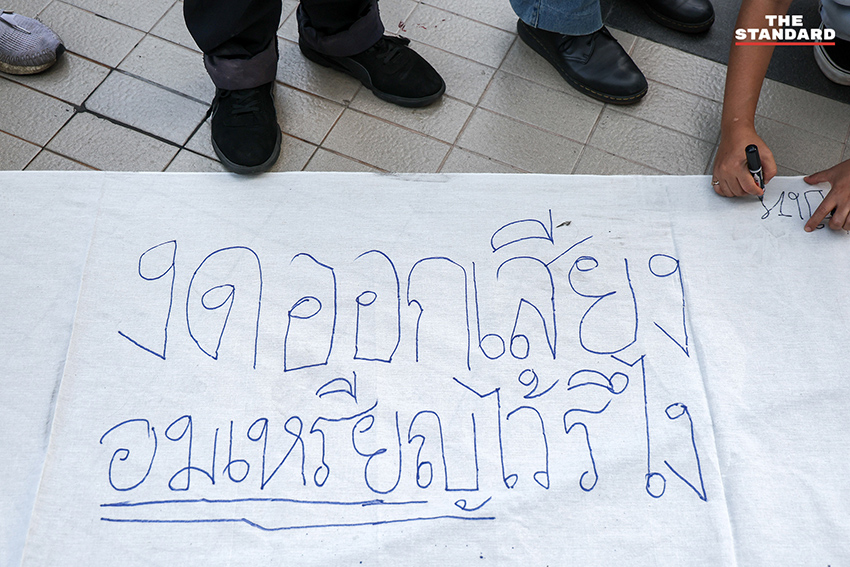 THE
STANDARD
งดออกเสียง
อมเหรียญไว้รึไง